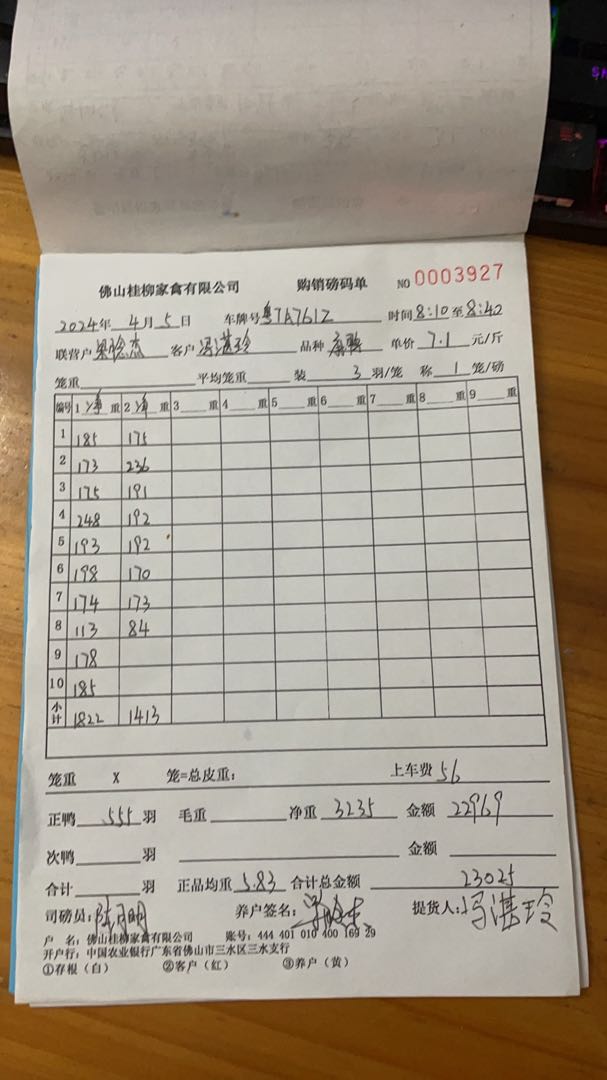 佛山桂柳家禽有限公司 购销磅码单 NO 0003927
2024年 4月 5日 车牌号 粤TA761Z 时间 8:10 至 8:42
联营户 客户 冯湛玲 品种 单价 7.1 元/斤
笼重 平均笼重 装 3 羽/笼 称 1 笼/磅
编号 1 净 重 2 净 重 3 重 4 重 5 重 6 重 7 重 8 重 9 重
1 185 175
2 173 236
3 175 191
4 248 192
5 193 192
6 198 170
7 174 173
8 113 84
9 178
10 185
小计 1822 1413
笼重 X 笼=总皮重： 上车费 56
正鸭 555 羽 毛重 净重 3235 金额 22969
次鸭 羽 金额
合计 羽 正品均重 5.83 合计总金额 23025
司磅员： 养户签名： 提货人：冯湛玲
户 名：佛山桂柳家禽有限公司 账号：444 401 010 400 169 29
开户行：中国农业银行广东省佛山市三水区三水支行
①存根（白） ②客户（红） ③养户（黄）